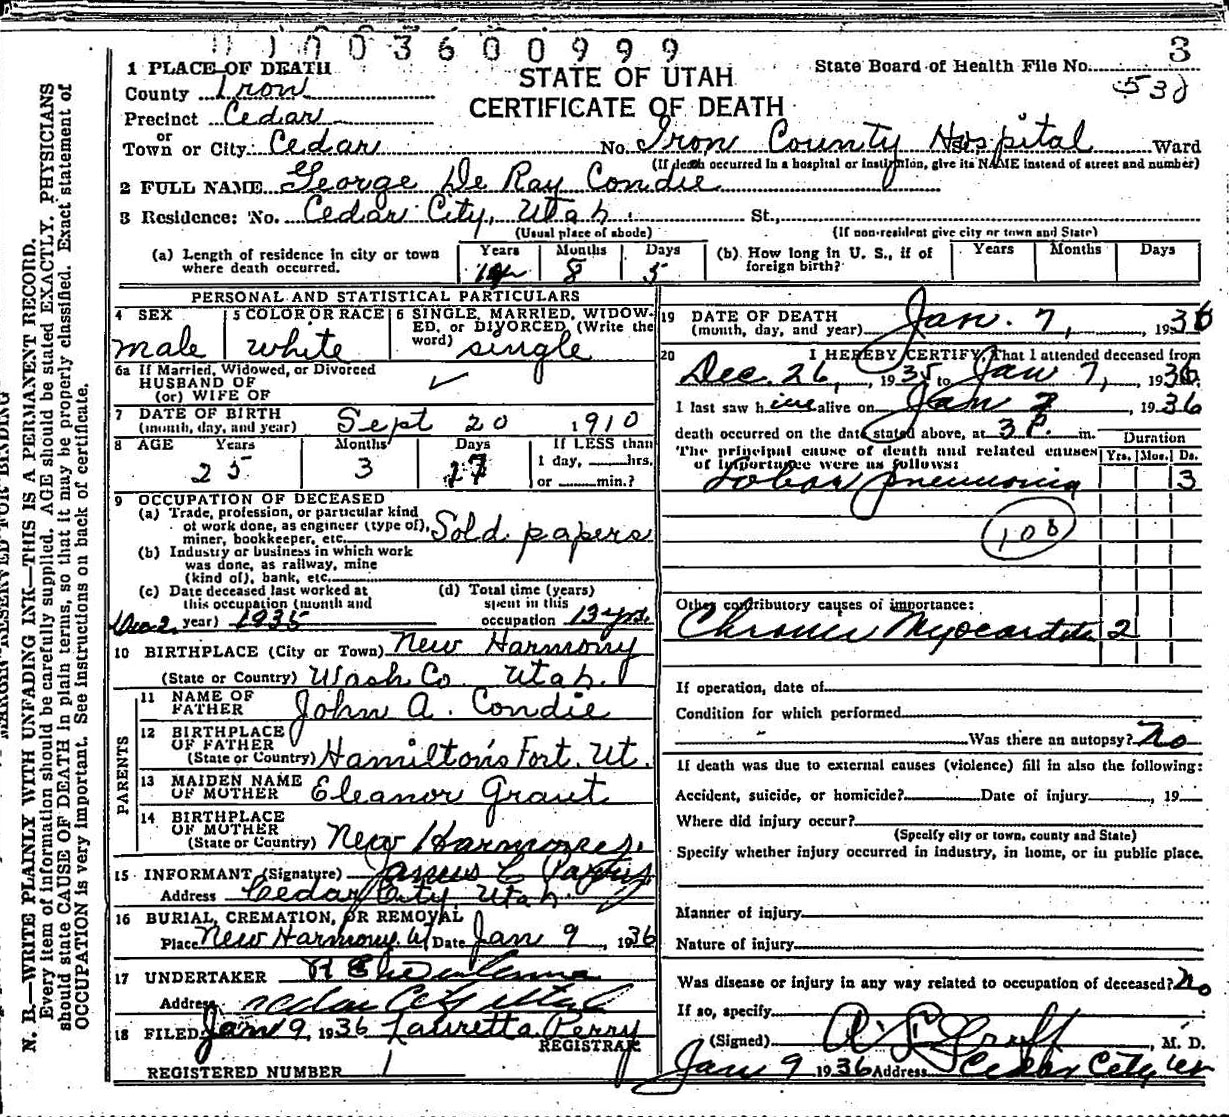 1 1 0 0 3 6 0 0 9 9 9
3
1 PLACE OF DEATH
STATE OF UTAH
CERTIFICATE OF DEATH
State Board of Health File No.
530
County Iron
Precinct Cedar
or
Town or City Cedar No. Iron County Hospital Ward
(If death occurred in a hospital or institution, give its NAME instead of street and number)
2 FULL NAME George De Ray Condie
3 Residence: No. Cedar City, Utah. St.,
(Usual place of abode) (If non-resident give city or town and State)
(a) Length of residence in city or town where death occurred. Years Months 8 Days 5
(b) How long in U. S., if of foreign birth? Years Months Days
PERSONAL AND STATISTICAL PARTICULARS
4 SEX male
5 COLOR OR RACE white
6 SINGLE, MARRIED, WIDOWED, or DIVORCED, (Write the word) single
6a If Married, Widowed, or Divorced
HUSBAND OF
(or) WIFE OF ✓
7 DATE OF BIRTH
(month, day, and year) Sept 20 1910
8 AGE Years 25 Months 3 Days 17 If LESS than
1 day, hrs.
or min.?
9 OCCUPATION OF DECEASED
(a) Trade, profession, or particular kind
of work done, as engineer (type of),
miner, bookkeeper, etc. Sold papers
(b) Industry or business in which work
was done, as railway, mine
(kind of), bank, etc.
(c) Date deceased last worked at
this occupation (month and
year) 1935
(d) Total time (years)
spent in this
occupation 13 yrs.
10 BIRTHPLACE (City or Town) New Harmony
(State or Country) Wash Co. Utah.
PARENTS
11 NAME OF
FATHER John A. Condie
12 BIRTHPLACE
OF FATHER
(State or Country) Hamilton's Fort. Ut.
13 MAIDEN NAME
OF MOTHER Eleanor Grant
14 BIRTHPLACE
OF MOTHER
(State or Country) New Harmony
15 INFORMANT (Signature)
Address Cedar City Utah.
16 BURIAL, CREMATION, OR REMOVAL
Place New Harmony, Ut Date Jan 9, 1936
17 UNDERTAKER
Address Cedar City Utah
18 FILED Jan 9, 1936 Lauretta Perry
REGISTRAR
REGISTERED NUMBER 1
19 DATE OF DEATH
(month, day, and year) Jan. 7, 1936
20 I HEREBY CERTIFY, That I attended deceased from
Dec. 26, 1935 to Jan 7, 1936
I last saw him alive on Jan 7, 1936
death occurred on the date stated above, at 3 P. m.
The principal cause of death and related causes
of importance were as follows:
Duration
Yrs. Mos. Ds.
Lobar pneumonia 3
108
Other contributory causes of importance:
Chronic Myocarditis 2
If operation, date of
Condition for which performed
Was there an autopsy? No
If death was due to external causes (violence) fill in also the following:
Accident, suicide, or homicide? Date of injury , 19
Where did injury occur?
(Specify city or town, county and State)
Specify whether injury occurred in industry, in home, or in public place.
Manner of injury
Nature of injury
Was disease or injury in any way related to occupation of deceased? No
If so, specify
(Signed) , M. D.
Jan 9 1936 Address Cedar City Ut
N. B.—WRITE PLAINLY WITH UNFADING INK—THIS IS A PERMANENT RECORD.
Every item of information should be carefully supplied. AGE should be stated EXACTLY. PHYSICIANS
should state CAUSE OF DEATH in plain terms, so that it may be properly classified. Exact statement of
OCCUPATION is very important. See instructions on back of certificate.
MARGIN RESERVED FOR BINDING